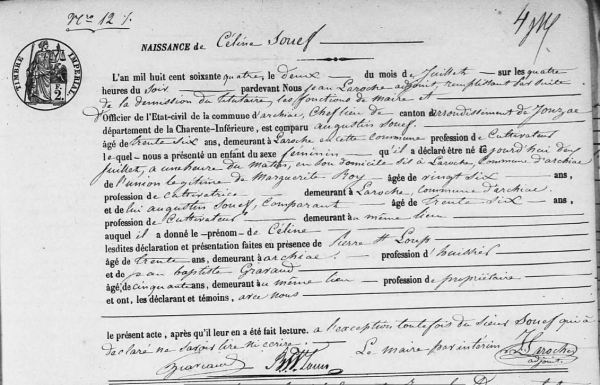 Nro 12
TIMBRE IMPERIAL
NAISSANCE de Céline Souef
L'an mil huit cent soixante quatre, le Deux du mois de Juillet sur les quatre
heures du Soir pardevant Nous Jean Laroche adjoint, remplissant par suite
de la demission du titulaire, les fonctions de Maire et
d'Officier de l'Etat-civil de la commune d'archiac, Chef lieu de canton arrondissement de Jonzac
département de la Charente-Inférieure, est comparu augustin Souef
âgé de trente Six ans, demeurant à Laroche en cette commune profession de Cultivateur
le-quel nous a présenté un enfant du sexe féminin qu'il a déclaré être né ce jourd'hui deux
Juillet, a une heure du matin, en son domicile sis à Laroche, Commune d'archiac
de l'union légitime de Marguerite Roy âgée de vingt Six ans,
profession de Cultivatrice demeurant à Laroche, Commune d'archiac.
et de lui augustin Souef, Comparant âgé de trente Six ans,
profession de Cultivateur demeurant au même lieu
auquel il a donné le prénom de Céline
lesdites déclaration et présentation faites en présence de Pierre Loup
âgé de trente ans, demeurant à archiac profession d'huissier
et de Jean baptiste Gravaud
âgé de cinquante ans, demeurant au même lieu profession de propriétaire
et ont, les déclarant et témoins, avec nous
le présent acte, après qu'il leur en a été fait lecture. a l'exception toutefois du Sieur Souef qui a
déclaré ne savoir lire ni ecrire.
Le Maire par interim
Gravaud
Laroche
adjoint